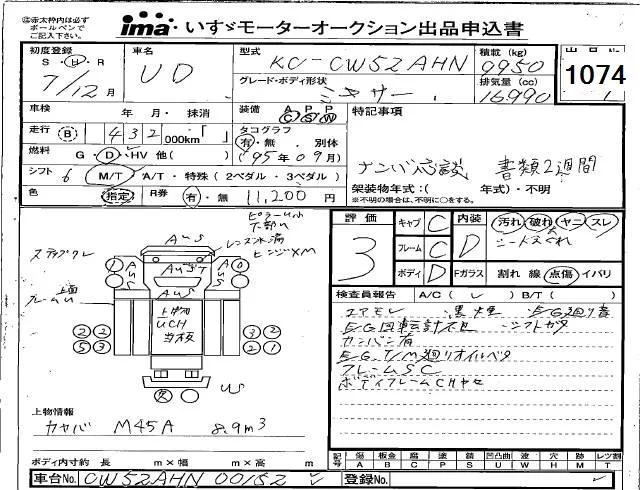 ㊟赤太枠内は必ず
ボールペンで
ご記入下さい。
ima いすゞモーターオークション出品申込書
初度登録 S・H・R 7/12月
車名 UD
型式 KC-CW52AHN
グレード・ボディ形状 ミキサー
積載 (kg) 9950
排気量 (cc) 16,990
1074
車検 年・月・抹消
走行 B 432,000km「 」
燃料 G・D・HV 他( )
シフト 6 M/T・A/T・特殊 (2ペダル・3ペダル)
色 指定 R券 有・無 11,200円
装備 A/C P/S P/W
タコグラフ
有・無・別体
('95年09月)
特記事項
ナンバ応談 書類2週間
架装物年式:( 年式)・不明
※不明の場合は、不明に○をする。
評価 3
キャブ C
フレーム C
ボディ D
内装 D
Fガラス
汚れ 破れ ヤニ スレ
割れ 線 点傷 イバリ
検査員報告 A/C( ✓ ) B/T( )
エアモレ 黒煙 E/G廻り音
E/G回転計不良 シフトガタ
カンバン有
E/G, T/M廻りオイルベタ
フレームSC
ボディフレームCHヤセ
ステップクレ
AUS
AUST
上物
UCH
上物情報
カヤバ M45A 8.9m³
ボディ内寸約 長 m×幅 m×高 m
記号 傷A 板金B 腐C 塗P 錆S 凹凸曲U 波W 穴H 跡M レツ割T
車台No. CW52AHN 00152
登録No.